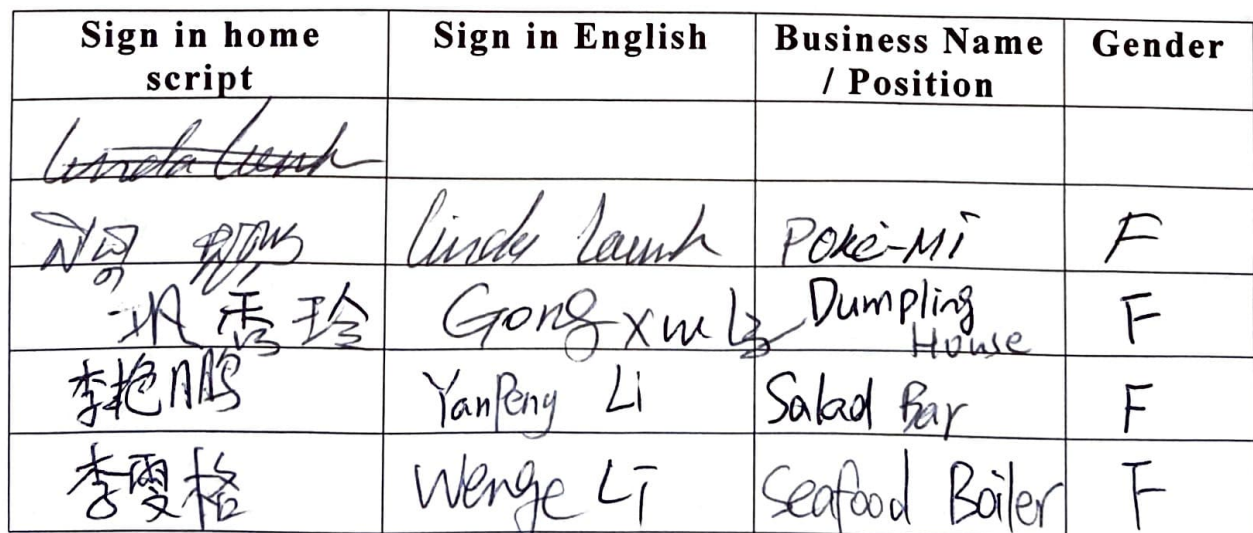 Sign in home script
Sign in English
Business Name / Position
Gender
Poké-Mi
F
Gong
Dumpling House
F
李艳鹏
YanPeng Li
Salad Bar
F
李雯格
Wenge Li
Seafood Boiler
F